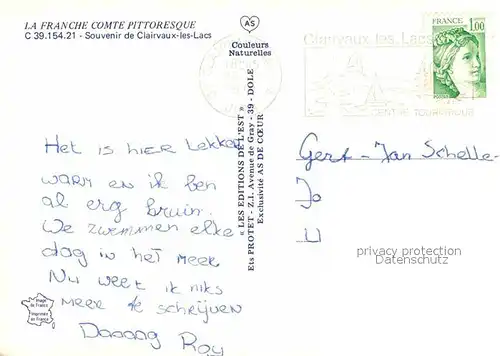 LA FRANCHE COMTE PITTORESQUE
C 39.154.21 - Souvenir de Clairvaux-les-Lacs
AS
Couleurs
Naturelles
Clairvaux les Lacs
CENTRE TOURISTIQUE
FRANCE
1,00
POSTES
« LES EDITIONS DE L'EST »
Ets PROTET - Z.I. Avenue de Gray - 39 - DOLE
Exclusivité AS DE CŒUR
Het is hier lekker
warm en ik ben
al erg bruin.
We zwemmen elke
dag in het meer
Nu weet ik niks
meer te schrijven
Daaaag Roy
Gert-Jan Schelle
privacy protection
Datenschutz
Image
de France
Imprimée
en France